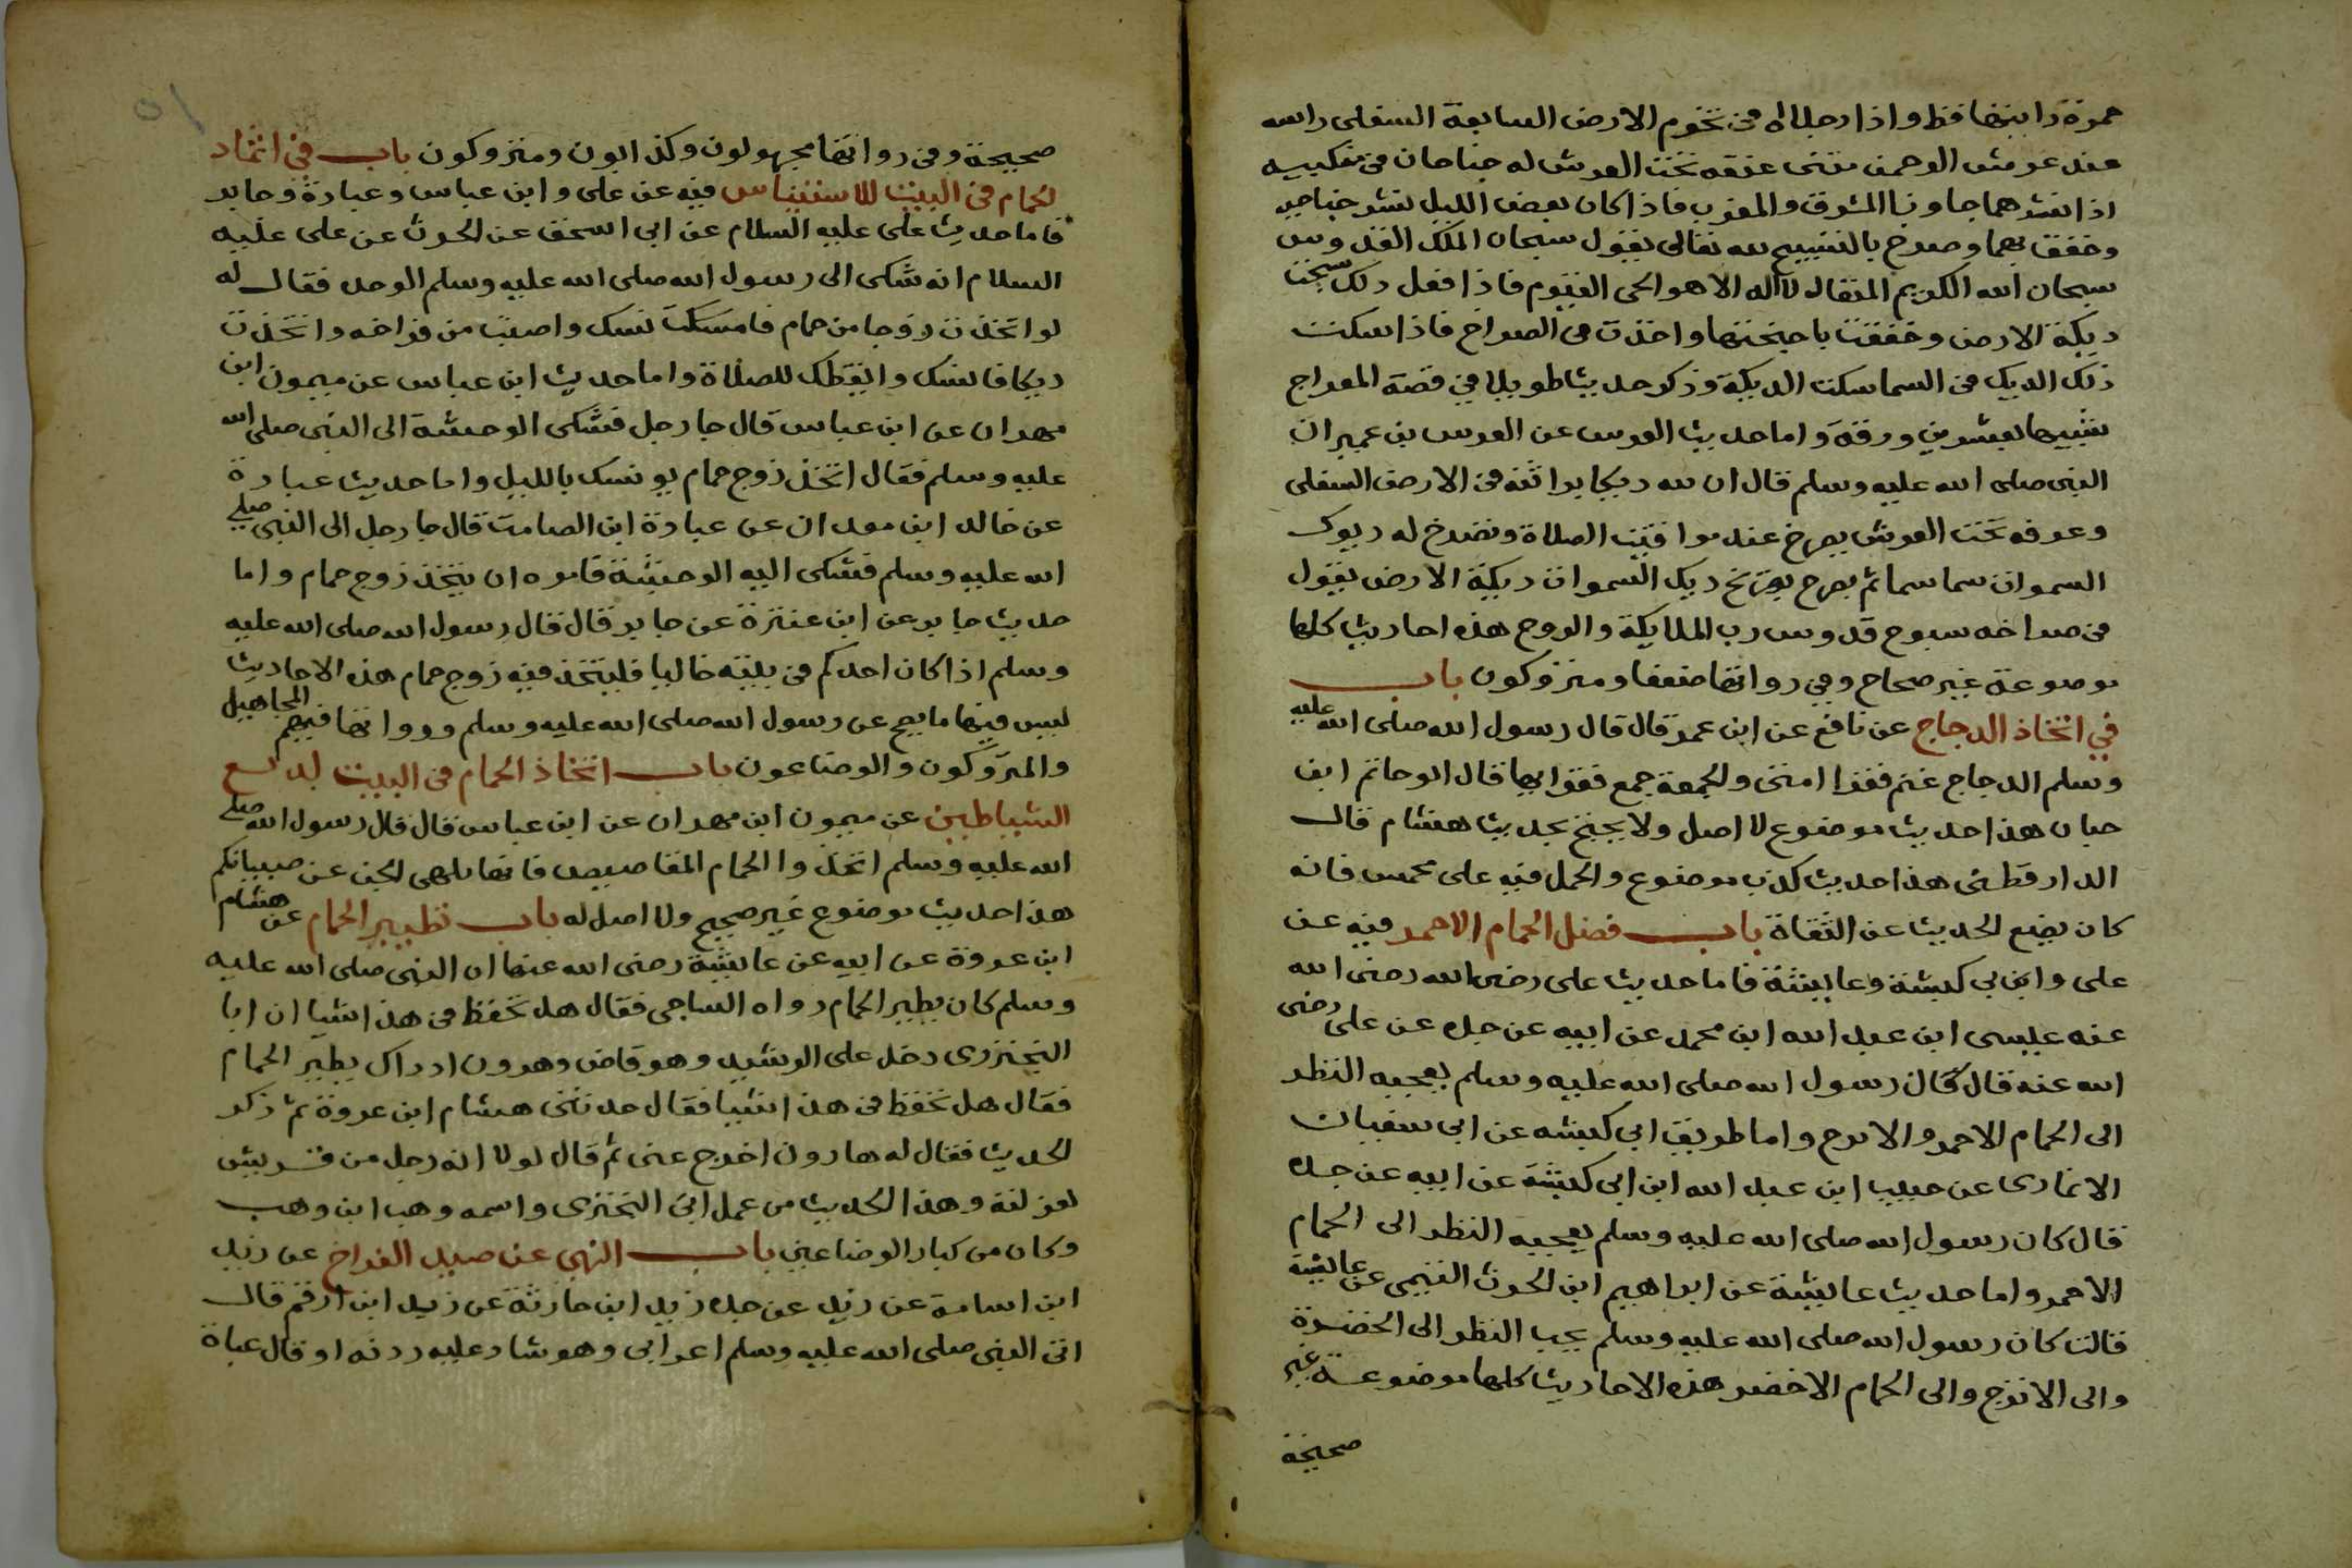 حمرة رايتها قط واذا رجلاه في تخوم الارض السابعة السفلى راسه
عند عرش الرحمن مثنى عنقه تحت العرش له جناحان في منكبيه
اذا نشرهما جاوزا المشرق والمغرب فاذا كان بعض الليل نشر جناحيه
وخفق بهما وصرخ بالتسبيح لله تعالى يقول سبحان الملك القدوس
سبحان الله الكريم المتعال لا اله الا هو الحي القيوم فاذا فعل ذلك سبحت
ديكة الارض وخفقت باجنحتها واخذت في الصراخ فاذا سكت
ذلك الديك في السما سكت الديكة وذكر حديثا طويلا في قصة المعراج
شبيها بعشرين ورقة واما حديث العرس عن العرس بن عميران
النبي صلى الله عليه وسلم قال ان لله ديكا براثنه في الارض السفلى
وعرفه تحت العرش يصرخ عند مواقيت الصلاة وتصرخ له ديوك
السموات سما سما ثم يصرخ بصرخ ديك السموات ديكة الارض يقول
في صراخه سبوح قدوس رب الملايكة والروح هذه احاديث كلها
موضوعة غير صحاح وفي رواتها ضعفا ومتروكون باب
في اتخاذ الدجاج عن نافع عن ابن عمر قال قال رسول الله صلى الله عليه
وسلم الدجاج غنم فقرا امتي والجمعة حج فقرايها قال ابو حاتم ابن
حبان هذا حديث موضوع لا اصل ولا يحتج بحديث هشام قال
الدارقطني هذا حديث كذب موضوع والحمل فيه على محمس فانه
كان يضع الحديث عن الثقاة باب فضل الحمام الاحمر فيه عن
على وابن بي كبشة وعايشة فاما حديث على رضى الله رضى الله
عنه عليسى ابن عبد الله ابن محمد عن ابيه عن جده عن على رضى
الله عنه قال كان رسول الله صلى الله عليه وسلم يعجبه النظر
الى الحمام الاحمر والاترج واما طريق ابي كبشه عن ابي سفيان
الانمارى عن حبيب ابن عبد الله ابن ابي كبشة عن ابيه عن جده
قال كان رسول الله صلى الله عليه وسلم يعجبه النظر الى الحمام
الاحمر واما حديث عايشة عن ابراهيم ابن الحرث التيمي عن عايشة
قالت كان رسول الله صلى الله عليه وسلم يحب النظر الى الخضرة
والى الاترج والى الحمام الاخضر هذه الاحاديث كلها موضوعة غير
صحيحة
صحيحة وفي رواتها مجهولون وكذابون ومتروكون باب في اتخاد
الحمام في البيت للاستيناس فيه عن على وابن عباس وعبادة وجابر
فاما حديث على عليه السلام عن ابى اسحق عن الحرث عن على عليه
السلام انه شكى الى رسول الله صلى الله عليه وسلم الوحد فقال له
لو اتخذت زوجا من حمام فامسكت نسك واصبت من فراخه واتخذت
ديكا فانسك وايقظك للصلاة واما حديث ابن عباس عن ميمون ابن
مهران عن ابن عباس قال جا رجل فشكى الوحشة الى النبى صلى الله
عليه وسلم فقال اتخذ زوج حمام يونسك بالليل واما حديث عبادة
عن خالد ابن معدان عن عبادة ابن الصامت قال جا رجل الى النبى صلى
الله عليه وسلم فشكى اليه الوحشة فامره ان يتخذ زوج حمام واما
حديث جابر عن ابن عنترة عن جابر قال قال رسول الله صلى الله عليه
وسلم اذا كان احدكم في بيته خاليا فليتخذ فيه زوج حمام هذه الاحاديث
ليس فيها ما يصح عن رسول الله صلى الله عليه وسلم ورواتها فيهم المجاهيل
والمتروكون والوضاعون باب اتخاذ الحمام في البيت لدفع
الشياطين عن ميمون ابن مهران عن ابن عباس قال قال رسول الله صلى
الله عليه وسلم اتخذوا الحمام المقاصيص فانها تلهى الجن عن صبيانكم
هذا حديث موضوع غير صحيح ولا اصل له باب تطيير الحمام عن هشام
ابن عروة عن ابيه عن عايشة رضى الله عنها ان النبى صلى الله عليه
وسلم كان يطير الحمام رواه الساجى فقال هل تحفظ في هذا شيا ان ابا
البخترى دخل على الرشيد وهو قاض وهرون اذ ذاك يطير الحمام
فقال هل تحفظ في هذا شيا فقال حدثنى هشام ابن عروة ثم ذكر
الحديث فقال له هارون اخرج عنى ثم قال لولا انه رجل من قريش
لعزلته وهذا الحديث من عمل ابى البخترى واسمه وهب ابن وهب
وكان من كبار الوضاعين باب النهى عن صيد الفراخ عن زيد
ابن اسامة عن زيد عن جده زيد ابن حارثة عن زيد ابن ارقم قال
اتى النبى صلى الله عليه وسلم اعرابى وهو شاد عليه ردنه او قال عباة